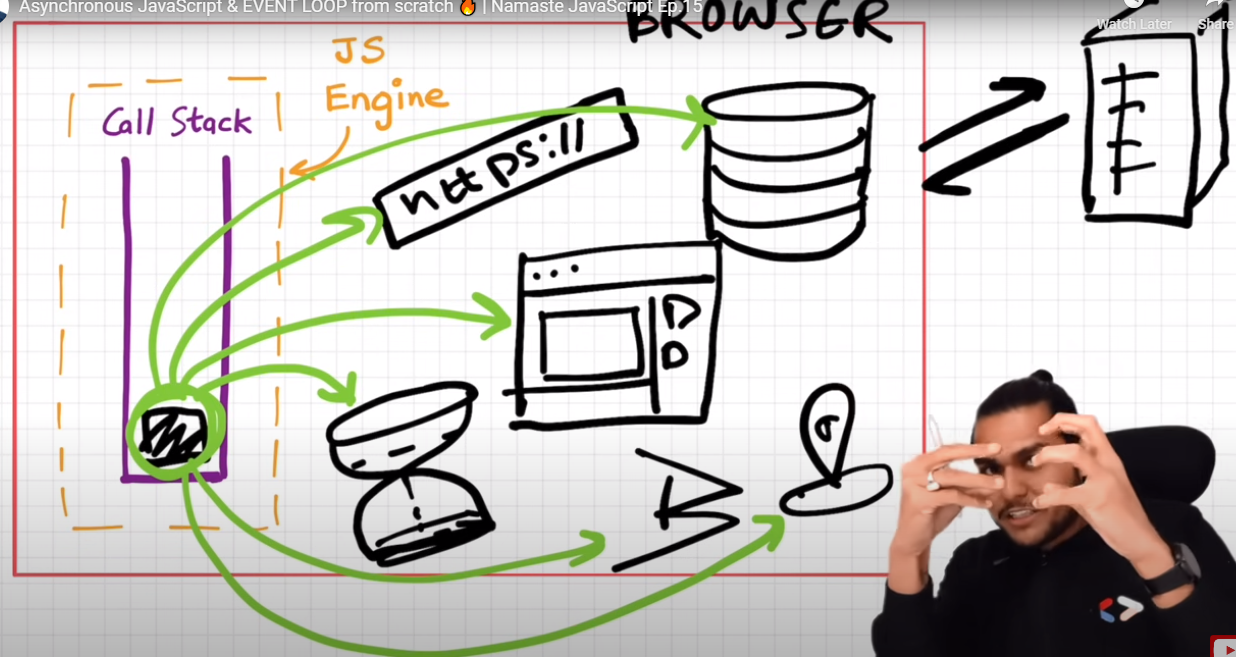 Asynchronous JavaScript & EVENT LOOP from scratch 🔥 | Namaste JavaScript Ep.15
BROWSER
Watch Later
Share
JS
Engine
Call Stack
https://